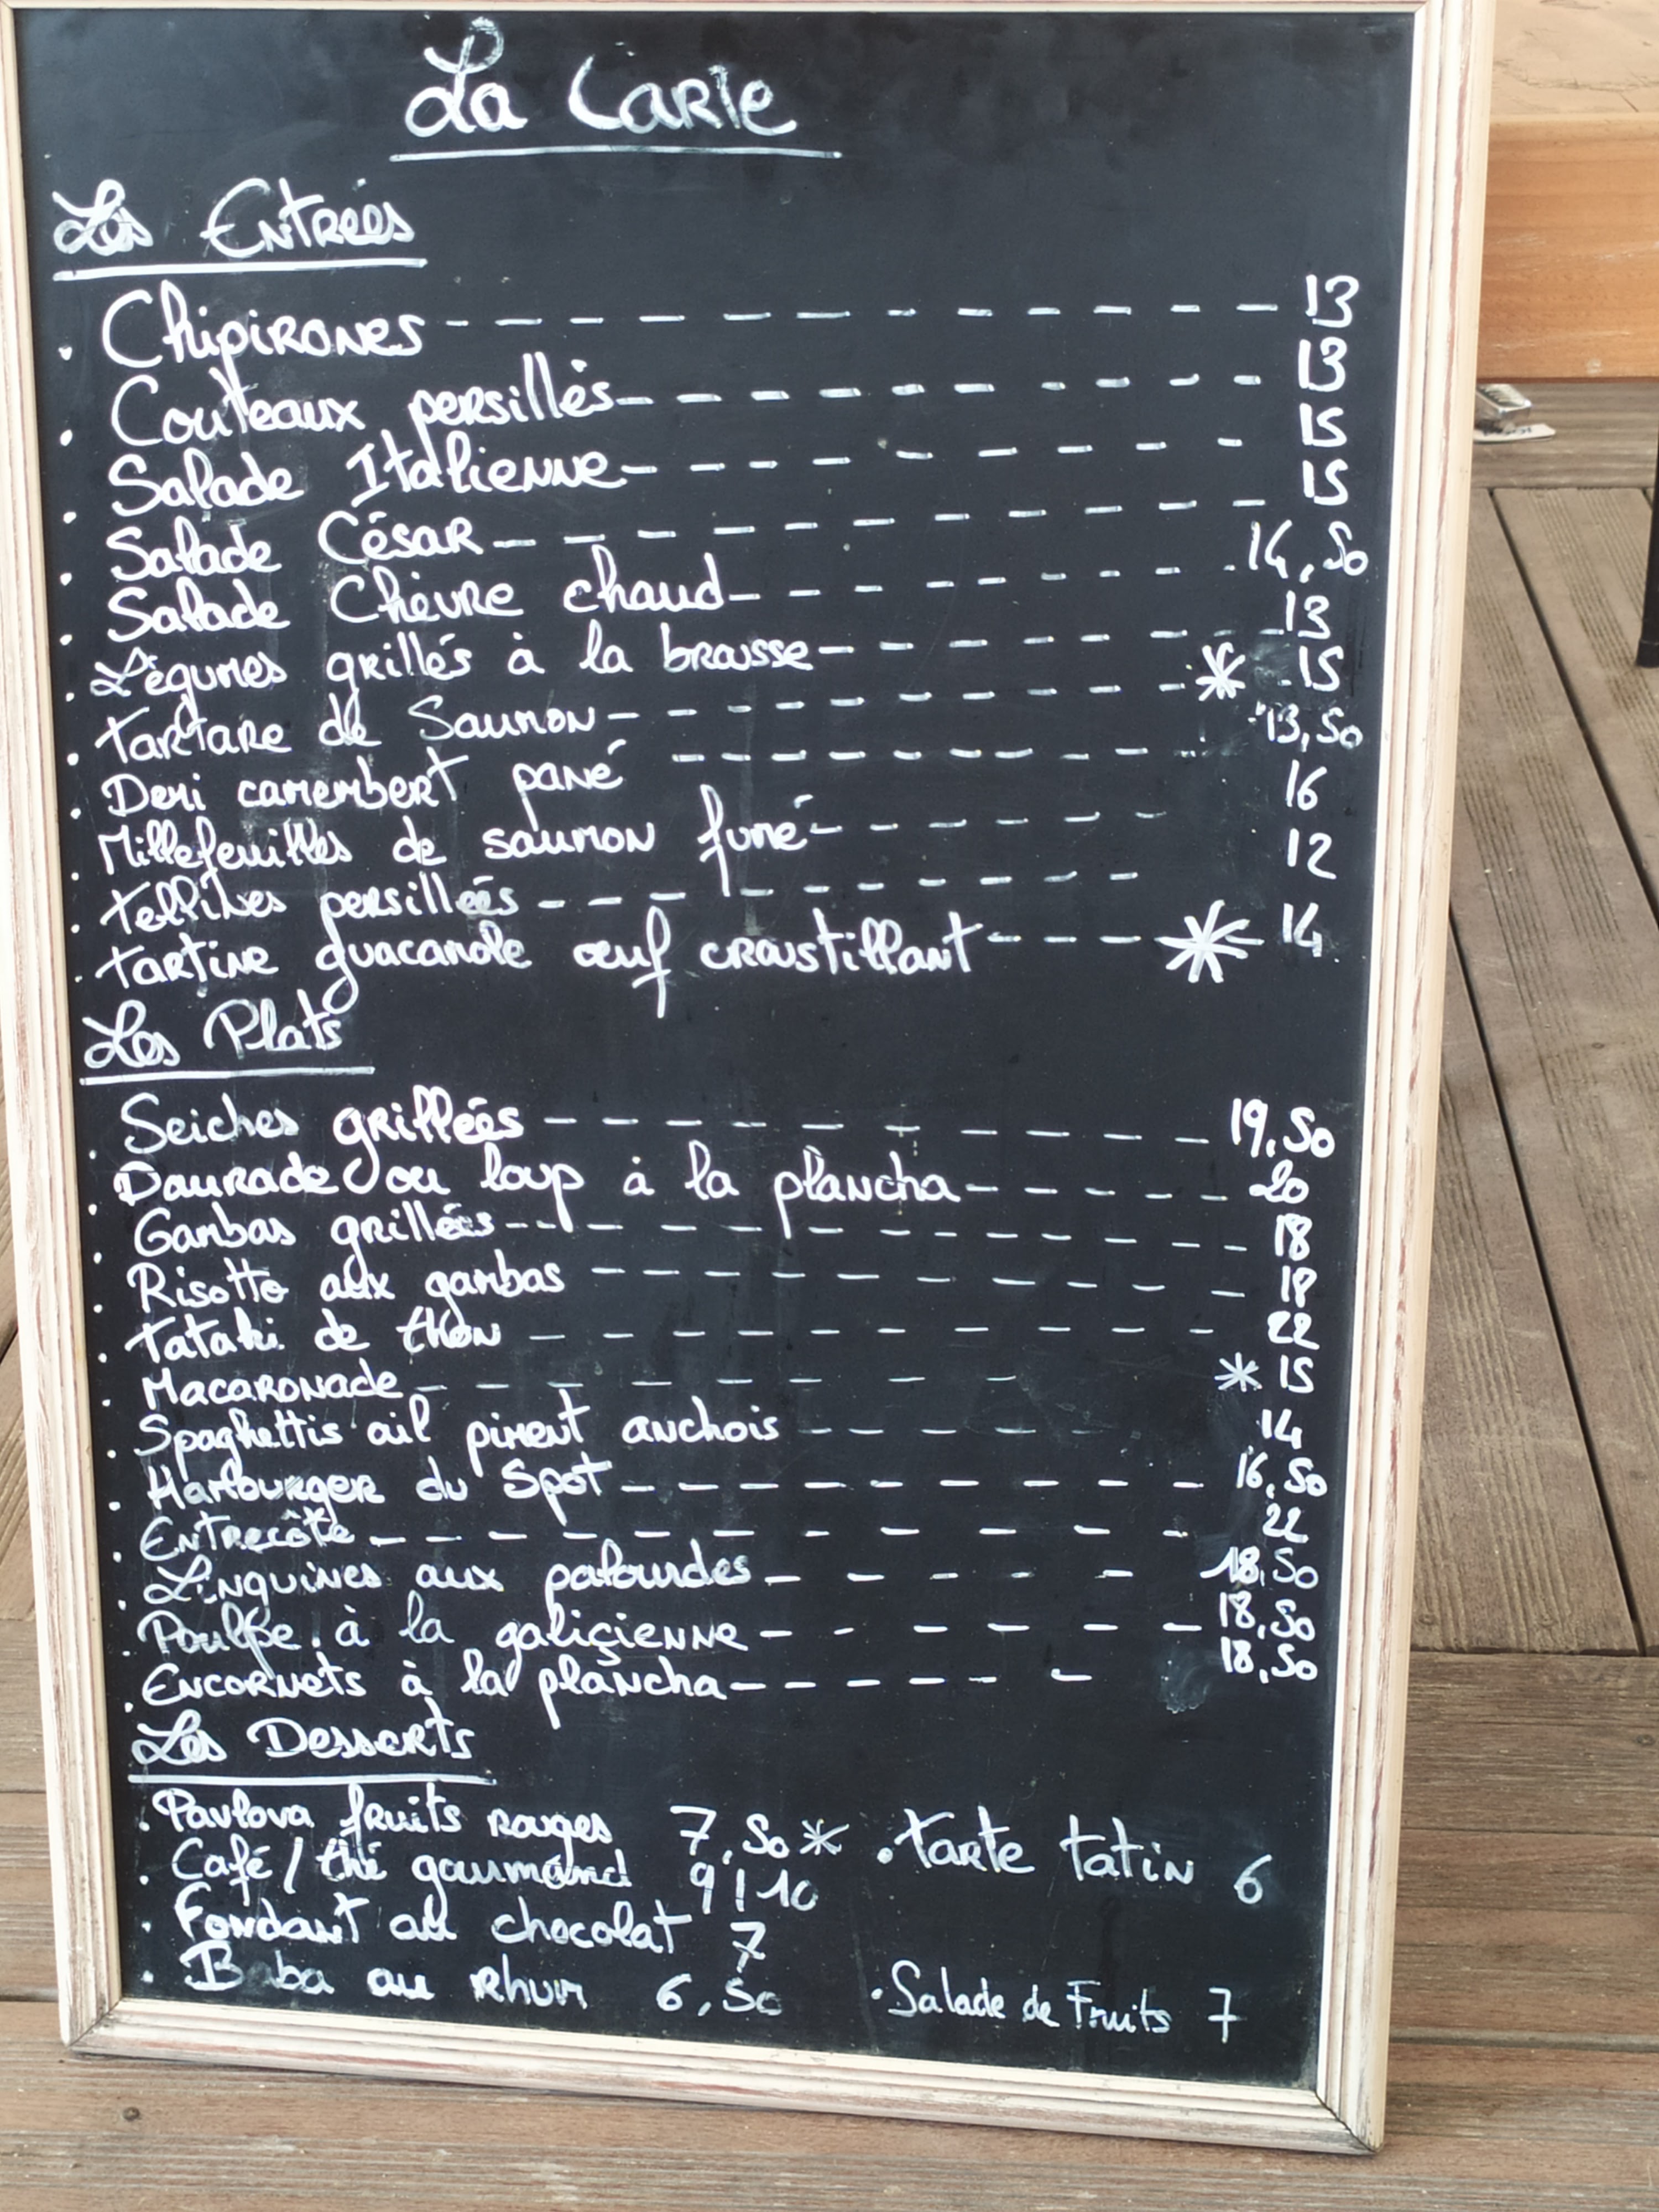 La Carte
Les Entrées
. Chipirones - - - - - - - - - - - - 13
. Couteaux persillés - - - - - - - - - 13
. Salade Italienne - - - - - - - - 15
. Salade César - - - - - - - - - - 15
. Salade Chèvre chaud - - - - - - - - 14,50
. Légumes grillés à la braisse - - - - - - - 13
. Tartare de Saumon - - - - - - - - * 15
. Demi camembert pané - - - - - - - - 13,50
. Millefeuilles de saumon fumé - - - - - - 16
. Tellines persillées - - - - - - - - - 12
. Tartine guacamole œuf croustillant - - - - * 14
Les Plats
. Seiches grillées - - - - - - - - - - 19,50
. Daurade ou loup à la plancha - - - - - 20
. Gambas grillées - - - - - - - - - - - 18
. Risotto aux gambas - - - - - - - - - 19
. Tataki de thon - - - - - - - - - - 22
. Macaronade - - - - - - - - * 15
. Spaghettis ail piment anchois - - - - - 14
. Hamburger du Spot - - - - - - - - - 16,50
. Entrecôte - - - - - - - - - - - 22
. Linguines aux palourdes - - - - - 18,50
. Poulpe à la galiçienne - - - - - - 18,50
. Encornets à la plancha - - - - - - 18,50
Les Desserts
. Pavlova fruits rouges 7,50 * . Tarte tatin 6
. Café / thé gourmand 9 / 10
. Fondant au chocolat 7
. Baba au rhum 6,50 . Salade de Fruits 7